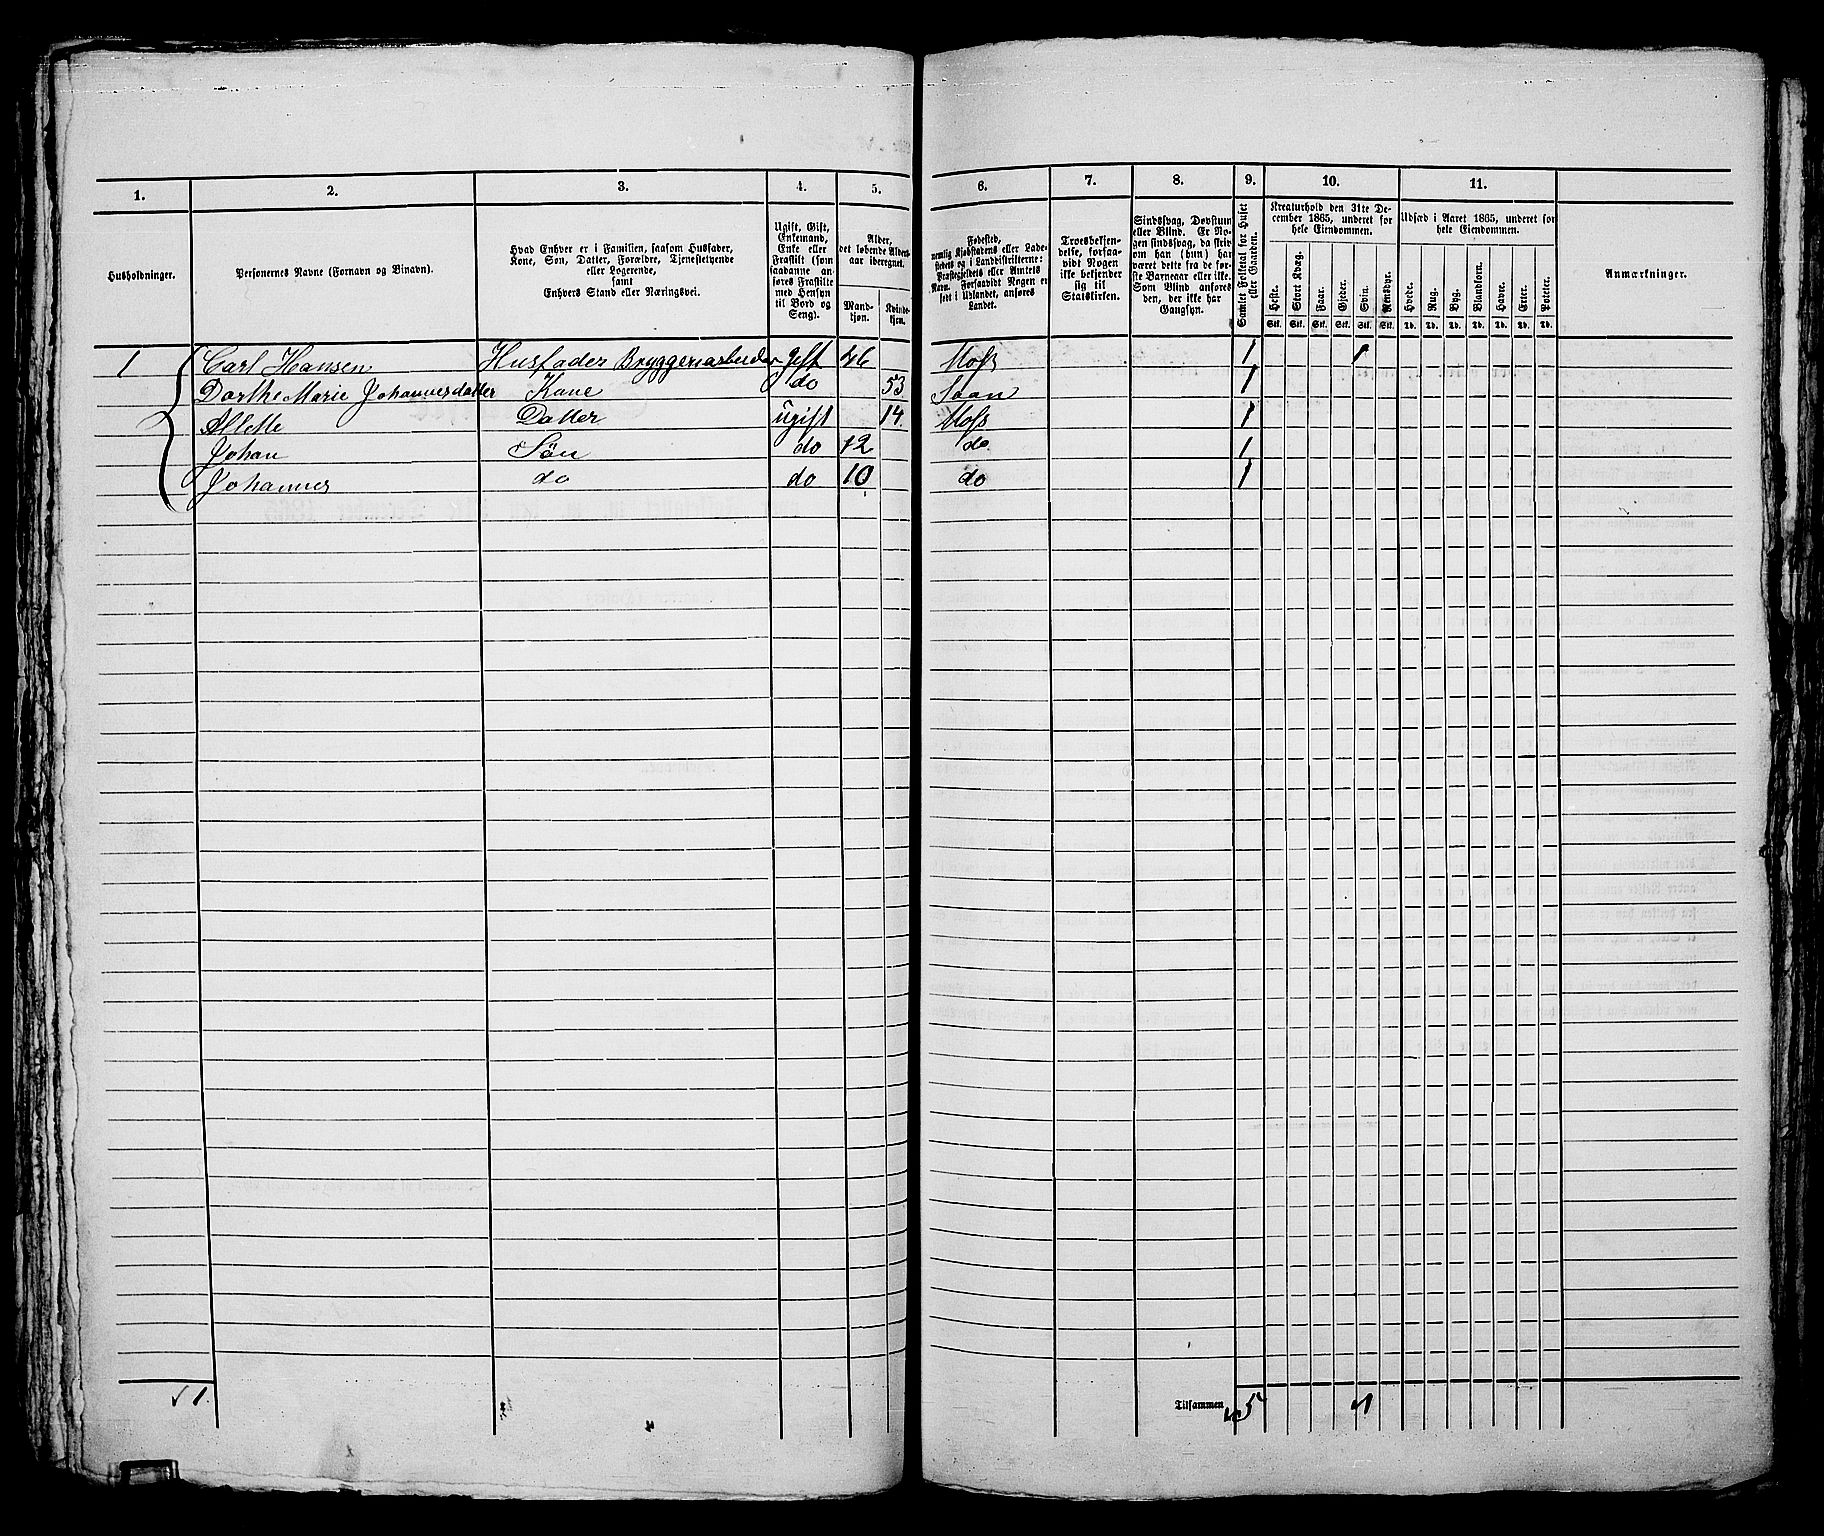 1. 2. 3. 4. 5. 6. 7. 8. 9. 10. 11.
Husholdninger.
Personernes Navne (Fornavn og Binavn).
Hvad Enhver er i Familien, saasom Husfader,
Kone, Søn, Datter, Forældre, Tjenestetyende
eller Logerende,
samt
Enhvers Stand eller Næringsvei.
Ugift, Gift,
Enkemand,
Enke eller
Fraskilt (som
saadanne an-
føres Fraskilte
med Hensyn
til Bord og
Seng).
Alder,
det løbende Alders-
aar iberegnet.
Mand-
kjøn.
Kvinde-
kjøn.
Fødested,
nemlig Kjøbstadens eller Lade-
stedets og i Landdistrikterne:
Præstegjeldets eller Amtets
Navn. Forsaavidt Nogen er
født i Udlandet, anføres
Landet.
Troesbekjen-
delse, forsaa-
vidt Nogen
ikke bekjender
sig til
Statskirken.
Sindssvag, Døvstum
eller Blind. Er No-
gen sindssvag, da skriv
om han (hun) har
været dette fra de før-
ste Barneaar eller ikke.
Som Blind anføres
den, der ikke har
Gangsyn.
Samlet Folketal for Huset
eller Gaarden.
Kreaturhold den 31te De-
cember 1865, underet for
hele Eiendommen.
Heste.
Stort Kvæg.
Faar.
Gjeder.
Svin.
Rensdyr.
Stk. Stk. Stk. Stk. Stk. Stk.
Udsæd i Aaret 1865, underet for
hele Eiendommen.
Hvede.
Rug.
Byg.
Blandkorn.
Havre.
Erter.
Poteter.
Td. Td. Td. Td. Td. Td. Td.
Anmærkninger.
1 Carl Hansen Husfader Bryggeriarbeider gift 46 Moss 1 1
Dorthe Marie Johannesdatter Kone do 53 Saan 1
Allette Datter ugift 14. Moss 1
Johan Søn do 12 do 1
Johannes do do 10 do 1
1. Tilsammen 5 1